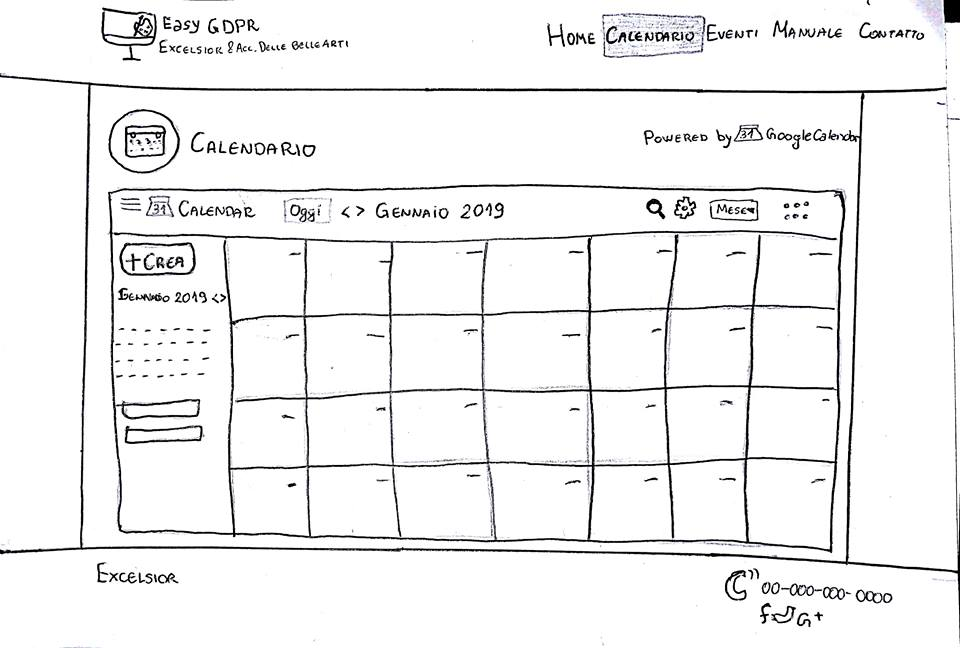 Easy GDPR
Excelsior & Acc. Delle Belle Arti
Home Calendario Eventi Manuale Contatto
Calendario
Powered by 31 Google Calendar
31 Calendar Oggi < > Gennaio 2019 Mese
+ Crea
Gennaio 2019 < >
Excelsior
00-000-000-0000
G+